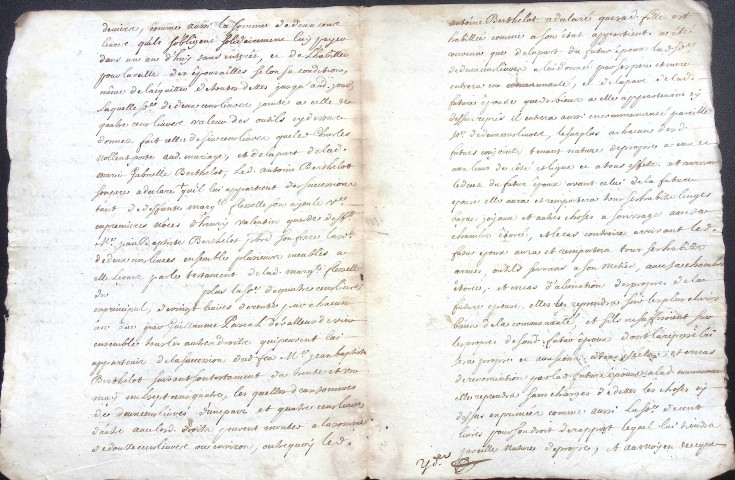 deniers, comme aussi la somme de deux cens
livres qu'ils s'obligent solidairement luy payer
dans un an d'huy sans interets, et de l'habiller
pour la veille des épousailles selon sa condition,
même de l'aquitter de toutes dettes jusqu'audit jour,
laquelle somme de deux cens livres jointe a celle de
quatre cens livres valeur des outils cy dessus
donnez fait celle de six cens livres que led. Charles
Nollent porte aud. mariage, et de la part de lad.
marie Gabrielle Berthelot, Led. Antoine Berthelot
son pere a declaré qu'il luy appartient des successions
tant de deffunte marg.te flexelle son ayeule v.ve
en premieres nôces d'henry valentin que de deff.
M.re jean Baptiste Berthelot son frere la so.e
de deux cens livres ensemble plusieurs meubles a
elle leguez par le testament de lad. marg.te flexelle
du plus la so.e de quatre cens livres
en principal, de vingt livres de rente par chacun
an due par Guillaume Parent
ensemble tous les autres droits qui peuvent lui
appartenir de la succession dud. feu M.re jean baptiste
Berthelot suivant son testament du trente et un
may mil sept cens quatre, lesquelles deux sommes
de deux cens livres d'une part et quatre cens livres
d'autre avec lesd. droits peuvent monter a la somme
de douze cens livres ou environ, outre quoy led.
antoine Berthelot a declaré que sad. fille est
habillée comme a son état appartient, a été
convenu que de la part du futur époux lad. so.e
de deux cens livres a lui donné par ses pere et mere
entrera en communauté, et de la part de lad.
future épouse que des biens a elle appartenans cy
dessus repris il entrera aussi en communauté pareille
so.e de deux cens livres, le surplus a chacun desd.
futurs conjoints tenant nature de propre a eux et
aux leurs de côté et ligne et a tous effets, et arrivant
le deces du futur époux avant celui de la future
épouse elle aura et remportera tous ses habits linges
bagues joyaux et autres choses a son usage avec sa
chambre étorée, et le cas contraire arrivant led.
futur époux aura et remportera tous ses habits
armes, outils servans a son métier, avec sa chambre
étorée, et en cas d'alienation des propres de la
future épouse, elle les reprendra sur les plus clairs
biens de la communauté et s'ils ne suffisoient sur
les propres dud. futur époux dont l'action lui
sera propre et aux siens a tous effets, et en cas
de renonciation par lad. future épouse a lad. communauté
elle reprendra sans charges de dettes les choses cy
dessus exprimées comme aussi la so.e de cent
livres pour son droit de rapport lequel lui tiendra
pareille nature de propre, et au moyen de ce que